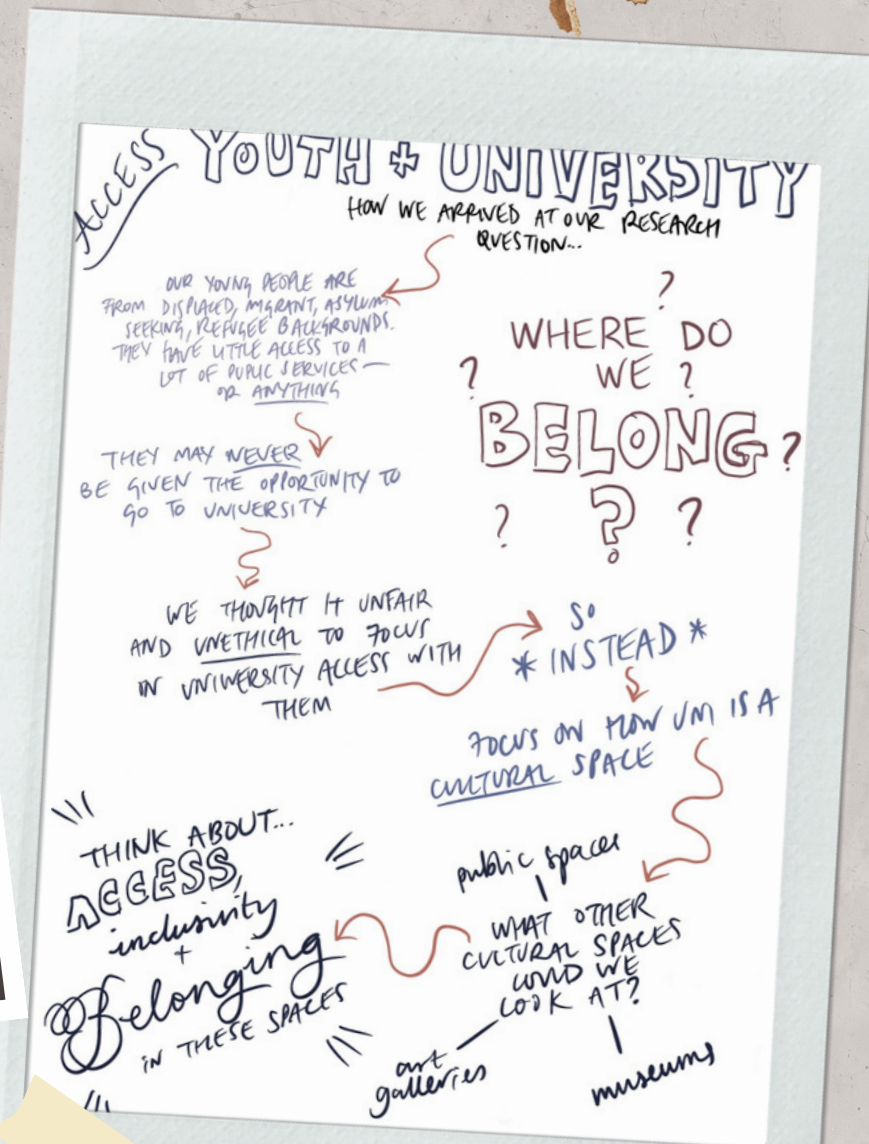 ACCESS
YOUTH + UNIVERSITY
HOW WE ARRIVED AT OUR RESEARCH
QUESTION...
OUR YOUNG PEOPLE ARE
FROM DISPLACED, MIGRANT, ASYLUM
SEEKING, REFUGEE BACKGROUNDS.
THEY HAVE LITTLE ACCESS TO A
LOT OF PUBLIC SERVICES —
OR ANYTHING
THEY MAY NEVER
BE GIVEN THE OPPORTUNITY TO
GO TO UNIVERSITY
WE THOUGHT IT UNFAIR
AND UNETHICAL TO FOCUS
IN UNIVERSITY ACCESS WITH
THEM
?
WHERE DO
? WE ?
BELONG?
? ? ?
SO
* INSTEAD *
FOCUS ON HOW UM IS A
CULTURAL SPACE
public spaces
WHAT OTHER
CULTURAL SPACES
COULD WE
LOOK AT?
art
galleries
museums
THINK ABOUT...
ACCESS,
inclusivity
+
Belonging
IN THESE SPACES